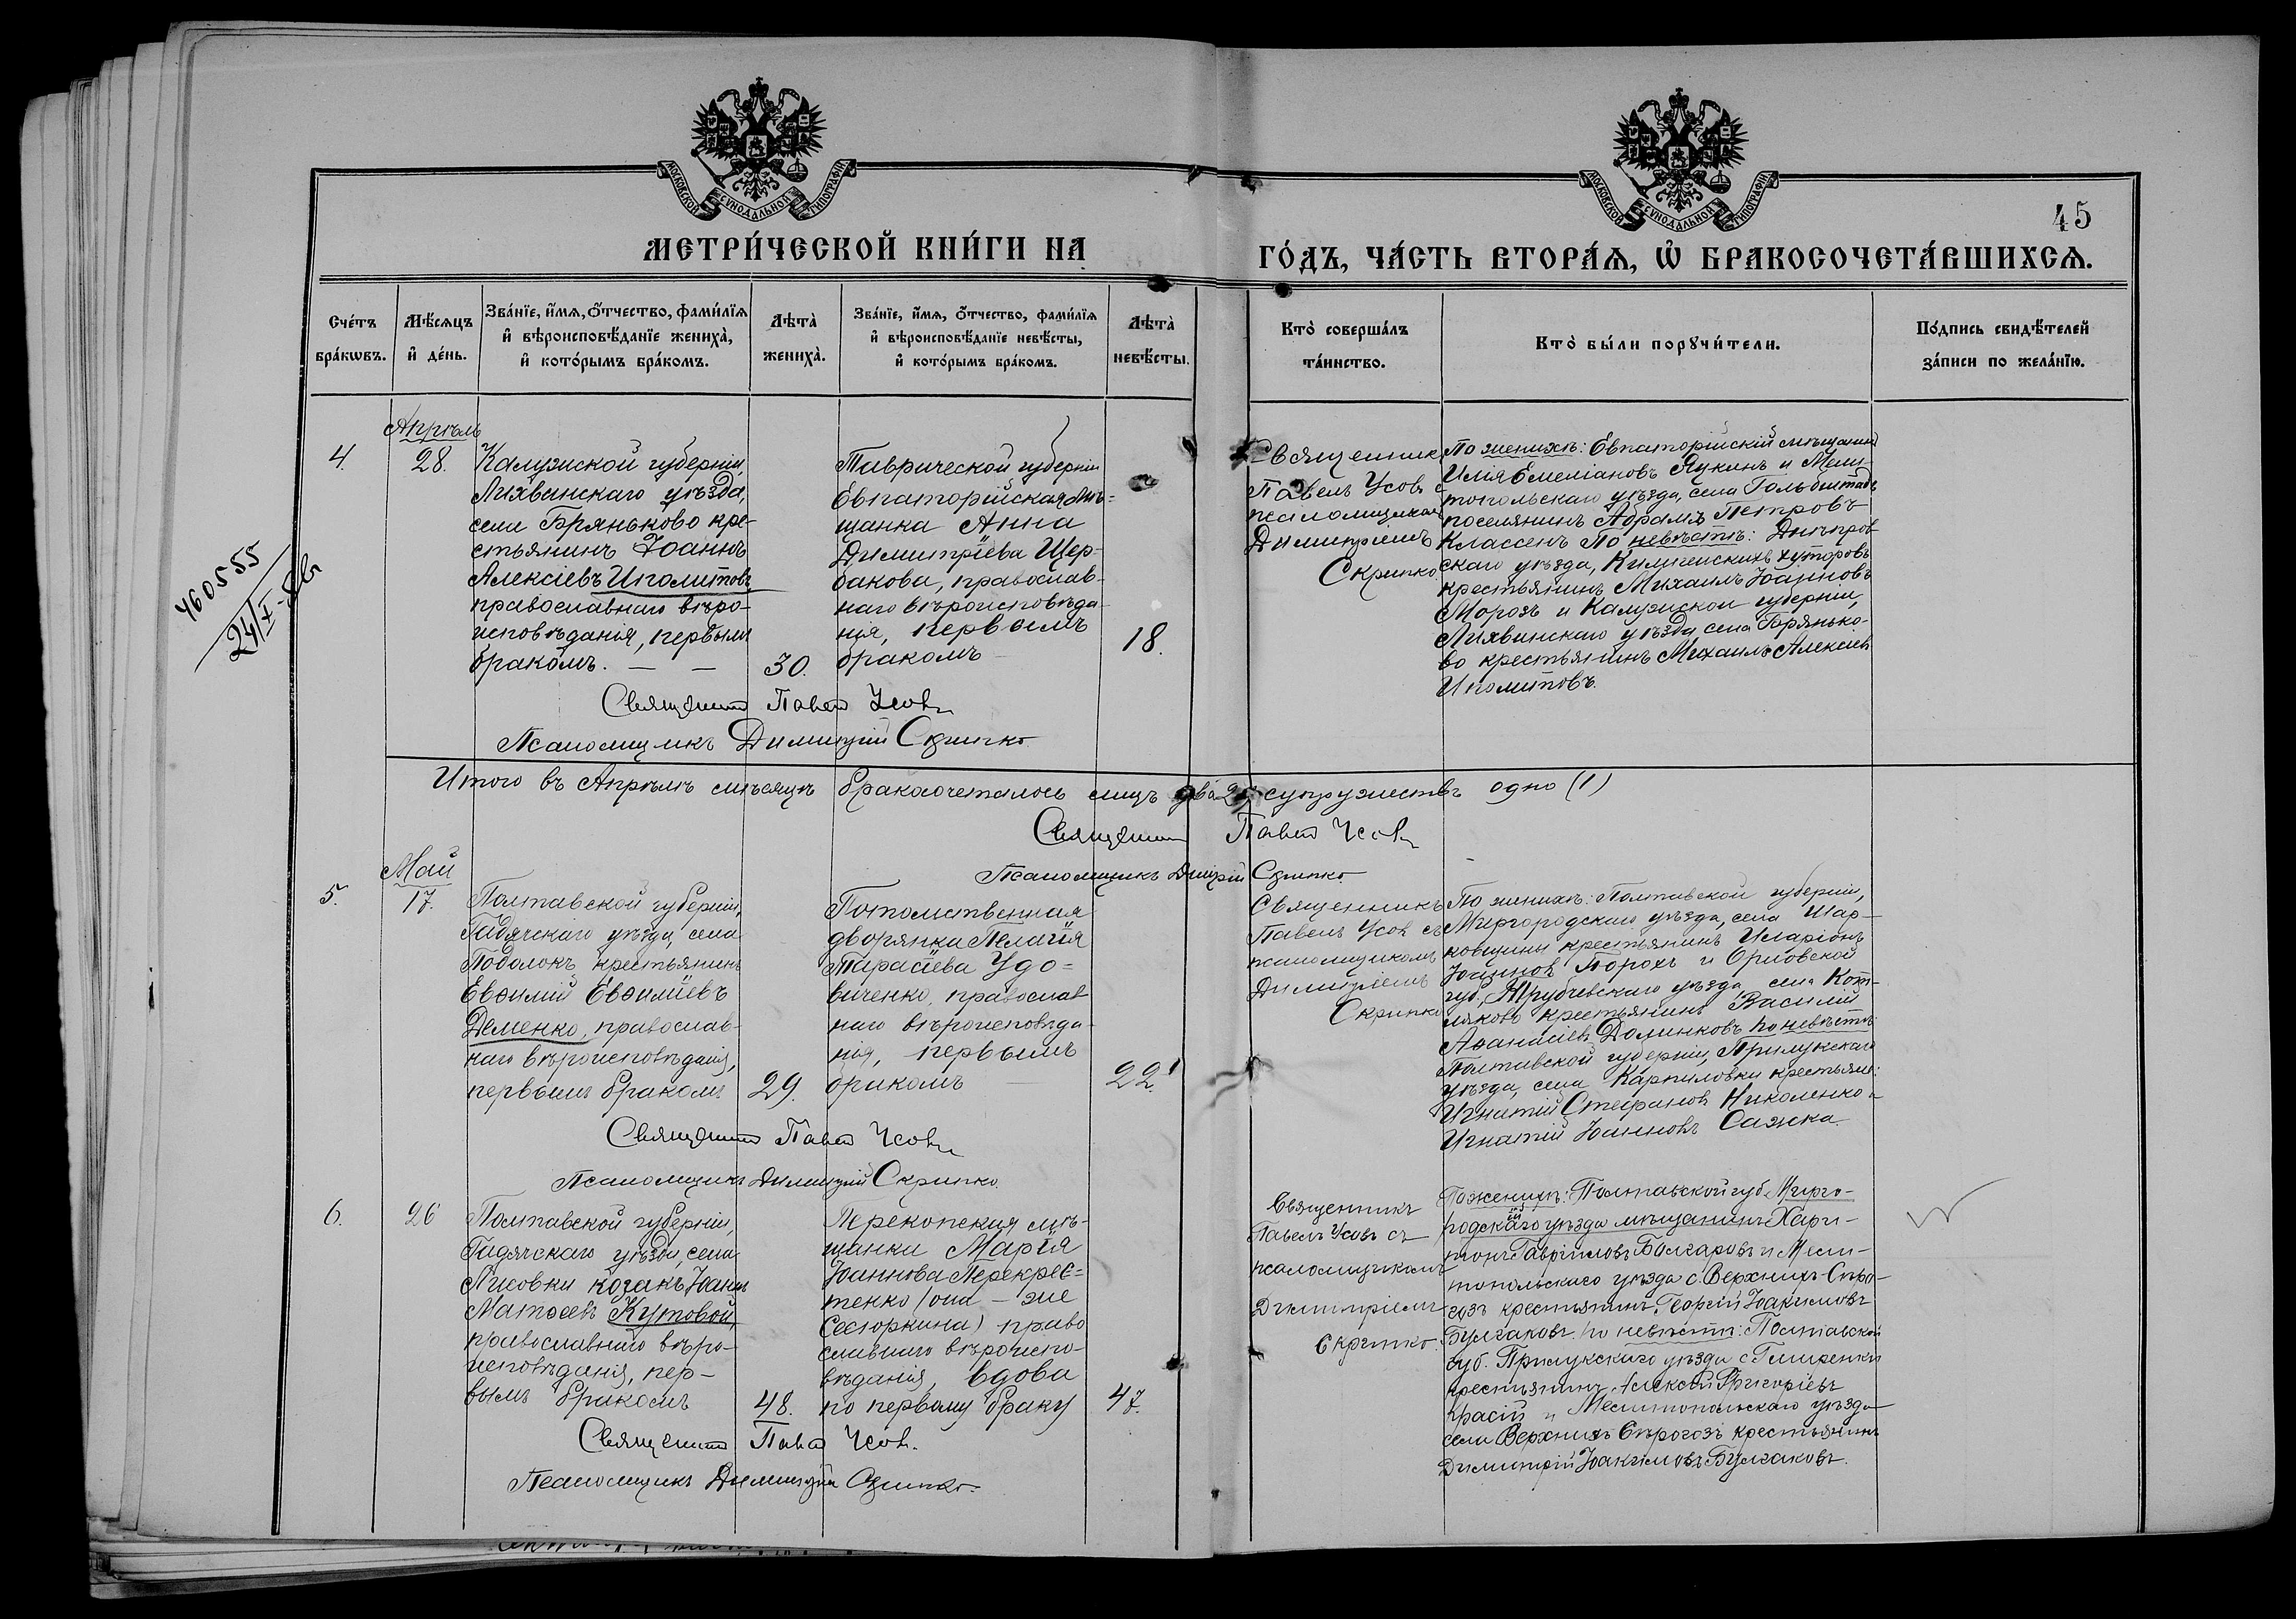 МОСКОВСКОЙ СѴНОДАЛЬНОЙ ТИПОГРАФІИ
МОСКОВСКОЙ СѴНОДАЛЬНОЙ ТИПОГРАФІИ
45
МЕТРИ́ЧЕСКОЙ КНИ́ГИ НА
ГО́ДЪ, ЧА́СТЬ ВТОРА́Ѧ, Ѡ҆ БРАКОСОЧЕТА́ВШИХСѦ.
Сче́тъ бра́кѡвъ.
Мѣ́сѧцъ и҆ де́нь.
Зва́нїе, и҆́мѧ, ѻ҆́тчество, фами́лїѧ и҆ вѣроисповѣ́данїе жениха̀, и҆ кото́рымъ бра́комъ.
Лѣта̀ жениха̀.
Зва́нїе, и҆́мѧ, ѻ҆́тчество, фами́лїѧ и҆ вѣроисповѣ́данїе невѣ́сты, и҆ кото́рымъ бра́комъ.
Лѣта̀ невѣ́сты.
Кто̀ соверша́лъ та́инство.
Кто̀ бы́ли порꙋчи́тели.
По́дпись свидѣ́телей за́писи по жела́нїю.
460555
24/X
4.
Апрѣль
28.
Калужской губерніи,
Лихвинскаго уѣзда,
села Бряньково кре-
стьянинъ Іоаннъ
Алексіевъ Иполитовъ
православнаго вѣро-
исповѣданія, первымъ
бракомъ. — —
30.
Таврической губерніи
Евпаторійская мѣ-
щанка Анна
Димитріева Щер-
бакова, православ-
наго вѣроисповѣда-
нія, первымъ
бракомъ —
18.
Священникъ
Павелъ Усовъ с
псаломщикомъ
Димитріемъ
Скрипко.
По женихѣ: Евпаторійскій мѣщанинъ
Илія Емеліановъ Яукинъ и Мели-
топольскаго уѣзда, села Гольбштадъ
поселянинъ Абрамъ Петровъ
Классенъ По невѣстѣ: Днѣпров
скаго уѣзда, хуторовъ
крестьянинъ Михаилъ Іоанновъ
Морозъ и Калужской губерніи,
Лихвинскаго уѣзда села Горянько-
во крестьянинъ Михаилъ Алексіев
Иполитовъ.
Священникъ Павелъ Усовъ
Псаломщикъ Димитрій Скрипко
Итого въ Апрѣлѣ мѣсяцѣ бракосочеталось лицъ два 2, супружествъ одно (1)
Священникъ Павелъ Усовъ
Псаломщикъ Димитрій Скрипко
5.
Май
17.
Полтавской губерніи,
Гадячскаго уѣзда, села
Подолокъ крестьянинъ
Евѳимій Евѳиміевъ
Деменко, православ-
наго вѣроисповѣданія,
первымъ бракомъ
29.
Потомственная
дворянка Пелагія
Тарасіева Удо=
виченко, православ
наго вѣроисповѣда-
нія, первымъ
бракомъ —
22.
Священникъ
Павелъ Усовъ съ
псаломщикомъ
Димитріемъ
Скрипко
По женихѣ: Полтавской губерніи,
Миргородскаго уѣзда, села Шар-
ковщины крестьянинъ Иларіонъ
Іоанновъ Порохъ и Орловской
губ., Трубчевскаго уѣзда, села Кот-
ляковъ крестьянинъ Василій
Аѳанасіевъ Долинковъ по невѣстѣ:
Полтавской губерніи, Прилукскаго
уѣзда, села Карпиловки крестьяне:
Игнатій Стефановъ Николенко и
Игнатій Іоанновъ Сажка.
Священникъ Павелъ Усовъ
Псаломщикъ Димитрій Скрипко.
6.
26
Полтавской губерніи,
Гадячскаго уѣзда, села
Лисовки козакъ Іоаннъ
Матѳеевъ Кутовой,
православнаго вѣро-
исповѣданія, пер-
вымъ бракомъ
48.
Перекопская мѣ-
щанка Марія
Іоаннова Перекрес=
тенко (она — же
Сесюркина) право
славнаго вѣроиспо-
вѣданія, вдова
по первому браку
47.
Священникъ
Павелъ Усовъ съ
псаломщикомъ
Димитріемъ
Скрипко.
По женихѣ: Полтавской губ. Мирго-
родскаго уѣзда мѣщанинъ Хари-
тонъ Гавріиловъ Болгаровъ и Мели-
топольскаго уѣзда с. Верхнихъ-Сѣро-
гозъ крестьянинъ Георгій Іоакимовъ
Булгаковъ. По невѣстѣ: Полтавской
губ. Прилукскаго уѣзда с.
крестьянинъ Алексѣй Григоріевъ
Красій и Мелитопольскаго уѣзда
села Верхнихъ Сѣрогозъ крестьянинъ
Димитрій Іоакимовъ Булгаковъ.
Священникъ Павелъ Усовъ.
Псаломщикъ Димитрій Скрипко.